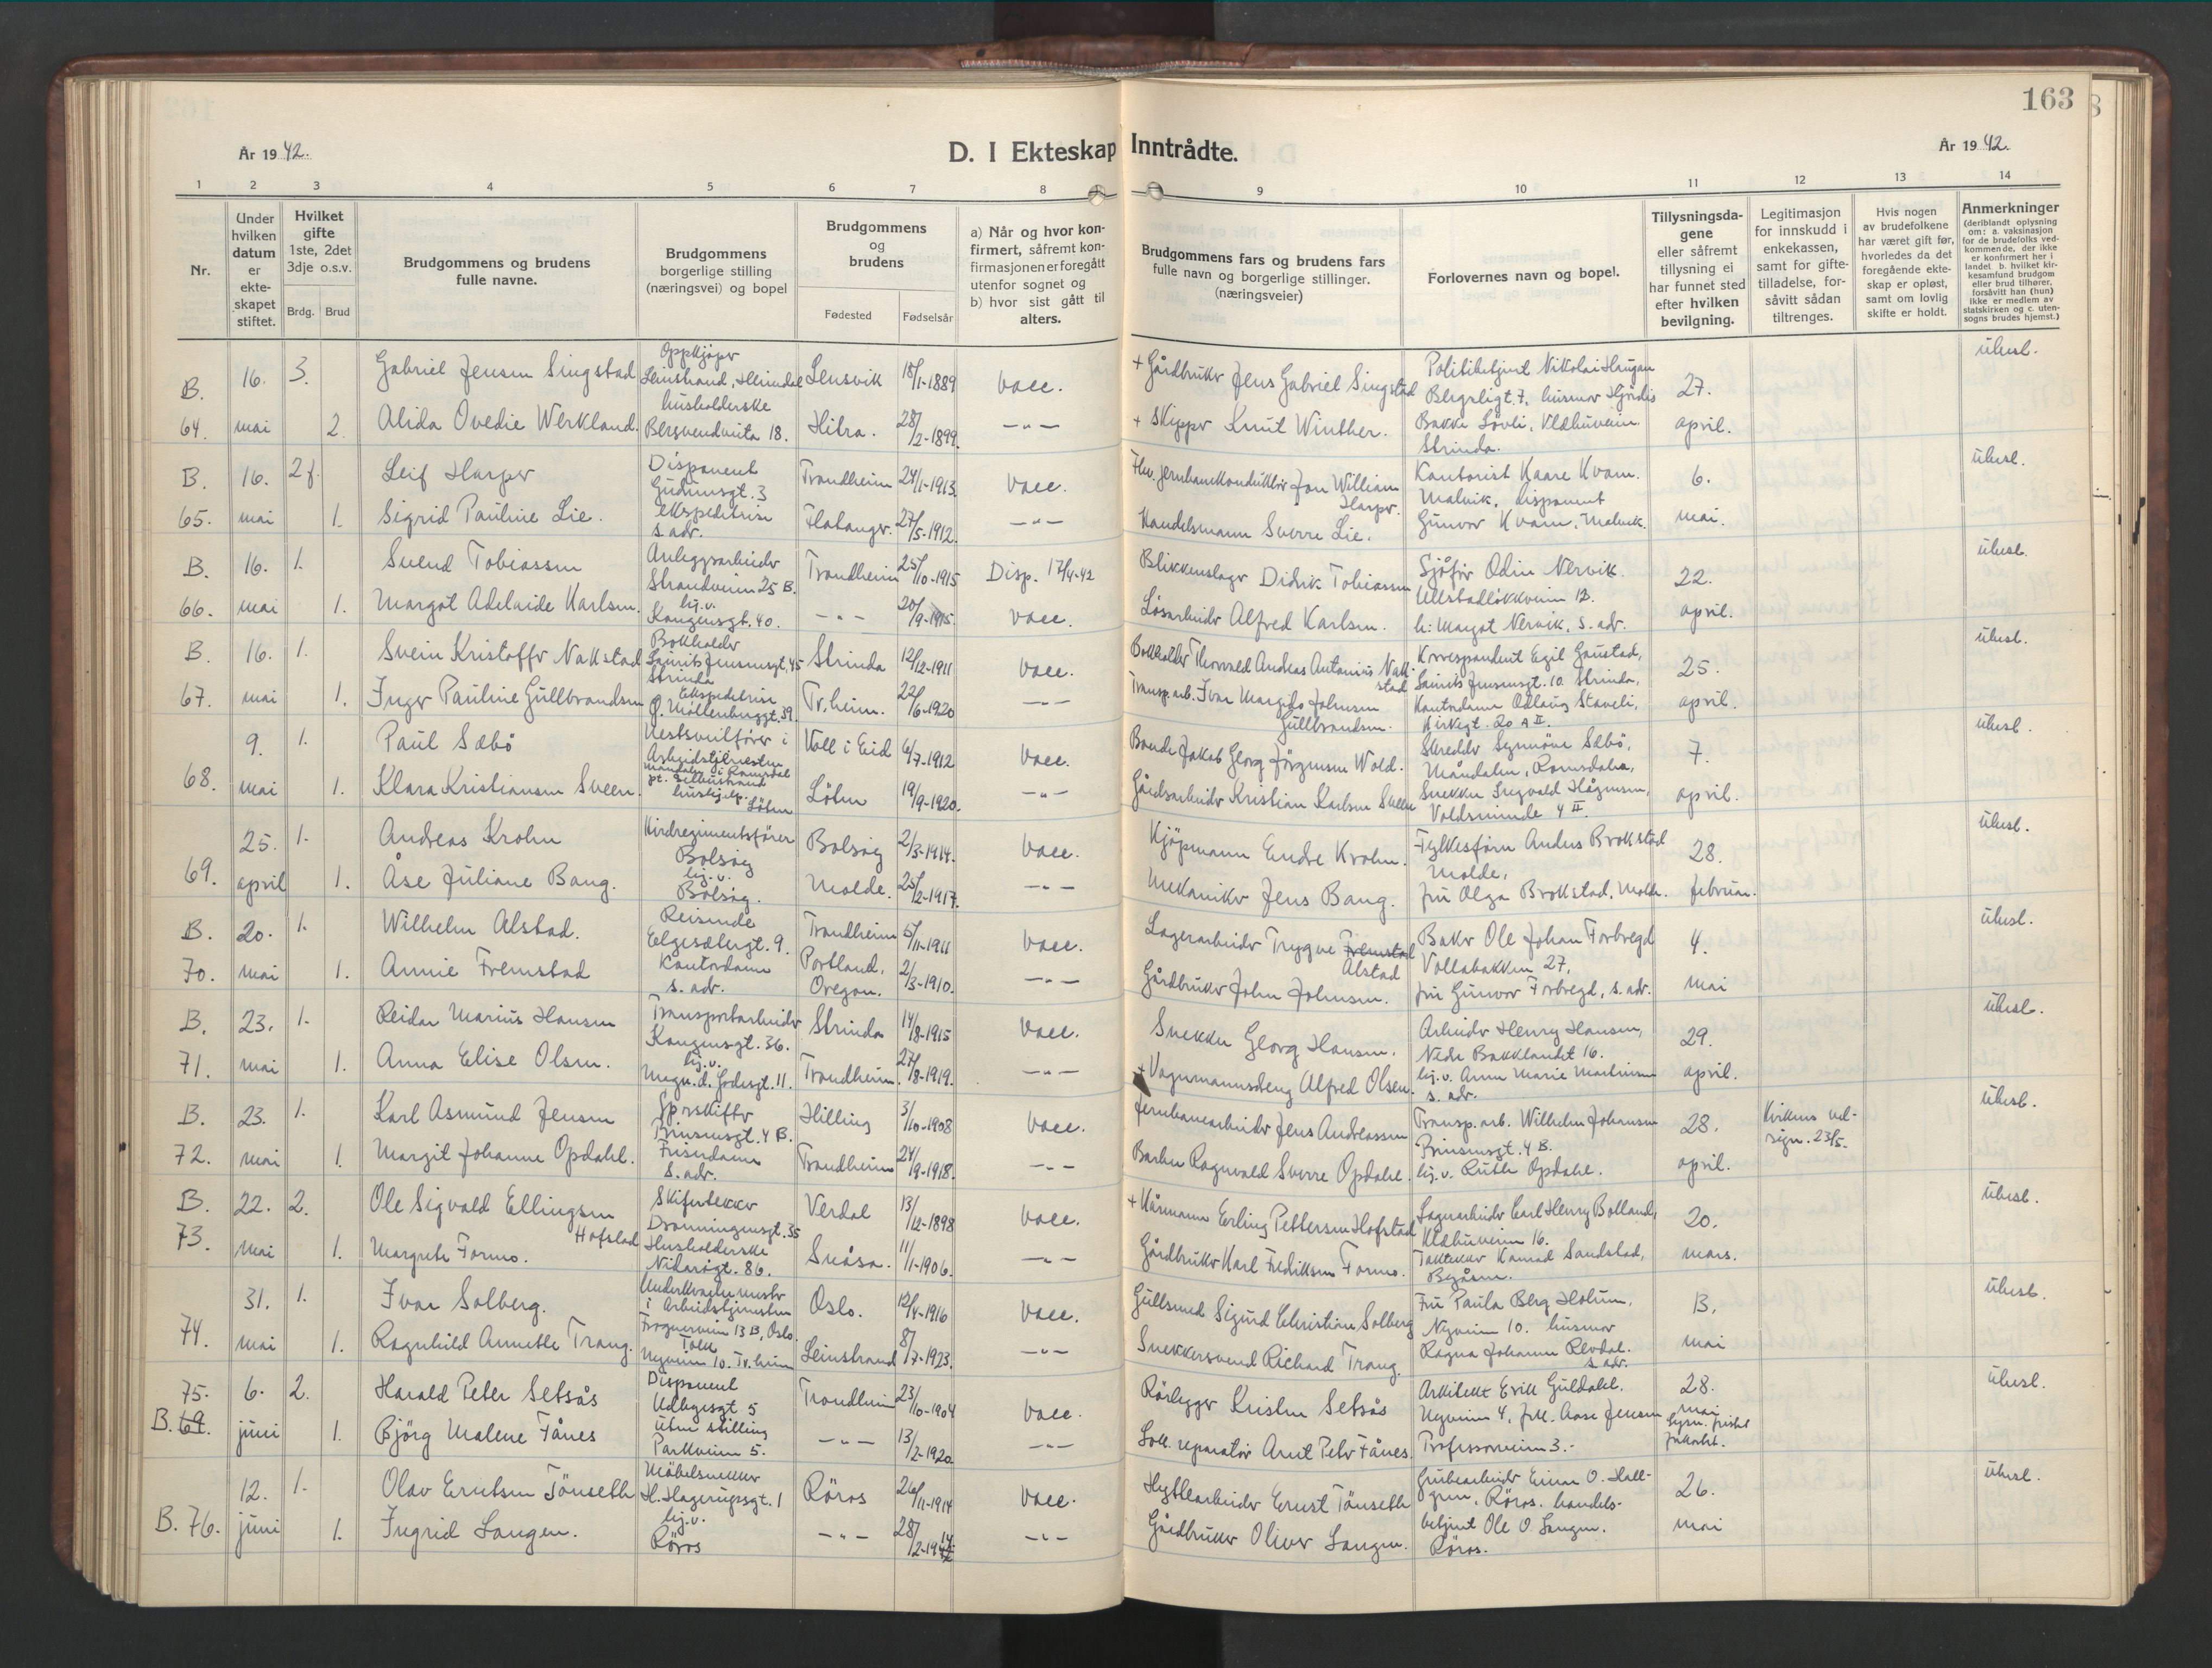 163
År 1942.
D. I Ekteskap Inntrådte.
År 1942.
1 2 3 4 5 6 7 8 9 10 11 12 13 14
Nr.
Under hvilken datum er ekte-skapet stiftet.
Hvilket gifte 1ste, 2det 3dje o.s.v.
Brdg. Brud
Brudgommens og brudens fulle navne.
Brudgommens borgerlige stilling (næringsvei) og bopel
Brudgommens og brudens
Fødested Fødselsår
a) Når og hvor kon-firmert, såfremt kon-firmasjonen er foregått utenfor sognet og b) hvor sist gått til alters.
Brudgommens fars og brudens fars fulle navn og borgerlige stillinger. (næringsveier)
Forlovernes navn og bopel.
Tillysningsda-gene eller såfremt tillysning ei har funnet sted efter hvilken bevilgning.
Legitimasjon for innskudd i enkekassen, samt for gifte-tilladelse, for-såvitt sådan tiltrenges.
Hvis nogen av brudefolkene har været gift før, hvorledes da det foregående ekte-skap er opløst, samt om lovlig skifte er holdt.
Anmerkninger (deriblandt oplysning om: a. vaksinasjon for de brudefolks ved-kommende, der ikke er konfirmert her i landet b. hvilket kir-kesamfund brudgom eller brud tilhører, forsåvitt han (hun) ikke er medlem av statskirken og c. uten-sogns brudes hjemst.)
B. 64. 16. mai 3. Gabriel Jensen Singstad Oppkjøper Leinstrand, Heimdal Lensvik 18/1-1889 vacc. + Gårdbruker Jens Gabriel Singstad Politibetjent Nikolai Haugan Bergsligt. 7, husmor Hjørdis 27. april. utensl.
2. Alida Ovedie Werkland. husholderske Bersvendveita 18. Hitra. 28/2-1899. -"- + Skipper Knut Winther. Bakke Lövli, Kldhuveien. Strinda.
B. 65. 16. mai 2 f. Leif Harper Disponent Gudrunsgt. 3 Trondheim 24/1-1913. vacc. Jernbanekonduktør Jon William Harper. Kontorist Kaare Kvam. Malvik, disponent 6. mai. utensl.
1. Sigrid Pauline Lie. ekspeditrise s. adr. Flatanger. 27/5-1912. -"- Handelsmann Sverre Lie. Gunvor Kvam, Malvik.
B. 66. 16. mai 1. Svend Tobiassen Anleggsarbeider Strandveien 25 B. Trondheim 25/10-1915 Disp. 17/4-42 Blikkenslager Didrik Tobiassen Sjåfør Odin Nervik. Ullstadløkkveien 12. 22. april. utensl.
1. Margot Adelaide Karlsen. hj.v. Kongensgt. 40. -"- 20/9-1915. vacc. Løsarbeider Alfred Karlsen. h: Margot Nervik, s. adr.
B. 67. 16. mai 1. Svein Kristoffer Nakstad Bokholder Laurits Jensensgt. 45 Strinda Strinda 12/12-1911 vacc. Bokholder Thorvald Andreas Antonius Nakstad Korrespondent Egil Gaustad, Laurits Jensensgt. 10. Strinda, 25. april. utensl.
1. Inger Pauline Gullbrandsen Ekspeditrise Ø. Møllenberggt. 39. Tr.heim. 22/6-1920 -"- Transp.arb. Ivar Margido Johnsen Gullbrandsen. Kontordame Oddlaug Staveli, Kirkegt. 20 A II.
68. 9. mai 1. Paul Sæbö Nestsveitfører i Arbeidstjenesten Måndalen i Romsdal pt. Selbustrand Voll i Eid 6/7-1912 vacc. Bonde Jakob Georg Jörgensen Wold. Skredder Synnöve Sæbö, Måndalen, Romsdalen, 7. april. utensl.
1. Klara Kristiansen Sveen. hushjelp. Löten Löten 19/9-1920. -"- Gårdsarbeider Kristian Karlsen Sveen Snekker Sigvald Hågensen, Voldsminde 4 II.
69. 25. april 1. Andreas Krohn Hirdregimentsfører Bolsöy Bolsöy 2/3-1914. vacc. Kjøpmann Endre Krohn. Fylkesfører Anders Brokstad Molde, 28. februar. utensl.
1. Åse Juliane Bang. hj.v. Bolsöy. Molde. 25/2-1917. -"- Mekaniker Jens Bang. fru Olga Brokstad, Molde.
B. 70. 20. mai 1. Wilhelm Alstad. Reisende Eelgesætergt. 9. Trondheim 5/11-1911 vacc. Lagerarbeider Trygve Fremstad Alstad Baker Ole Johan Forbregd Vollabakken 27, 4. mai utensl.
1. Annie Fremstad Kontordame s. adr. Portland, Oregon. 2/3-1910. -"- Gårdbruker John Johnsen. fru Gunvor Forbregd, s. adr.
B. 71. 23. mai 1. Reidar Marius Hansen Transportarbeider Kongensgt. 36. Strinda 14/8-1915 vacc. Snekker Georg Hansen. Arbeider Henry Hansen, Nedre Bakklandet 16. 29. april. utensl.
1. Anna Elise Olsen. hj.v. Magn. d. Godesgt. 11. Trondheim. 27/8-1919. -"- + Vognmannsdreng Alfred Olsen. hj.v. Anne Marie Martinsen s. adr.
B. 72. 23. mai 1. Karl Asmund Jensen Sporskifter Prinsensgt. 4 B. Hilling 3/10-1908 vacc. Jernbanearbeider Jens Andreassen Transp. arb. Wilhelm Johansen Prinsensgt. 4 B. 28. april. Kirkens vel-sign. 23/5. utensl.
1. Margit Johanne Opdahl. Friserdame s. adr. Trondheim 24/9-1918. -"- Barber Ragnvald Sverre Opdahl. hj.v. Ruth Opdahl.
B. 73. 22. mai 2. Ole Sigvald Ellingsen Hofstad Skifertekker Dronningensgt. 35 Verdal 13/12-1898 vacc. + Kårmann Erling Pettersen Hofstad Lagerarbeider Carl Henry Bolland, Kldhuveien 16. 20. mars. utensl.
1. Margrete Formo. Husholderske Nidarøgt. 86. Snåsa. 11/1-1906. -"- Gårdbruker Karl Fredriksen Formo. Taktekker Konrad Sandstad, Byåsen.
74. 31. mai 1. Ivar Solberg. Underkvartermester i Arbeidstjenesten Frognerveien 13 B, Oslo. Oslo. 12/4-1916 vacc. Gullsmed Sigurd Christian Solberg Fru Paula Berg Holum, Nyveien 10. husmor 13. mai utensl.
1. Ragnhild Annette Trang. Tolk Nyveien 10. Tr.heim Leinstrand 8/7-1923. -"- Snekkersvend Richard Trang. Ragna Johanne Revdal. s. adr.
75. B. 69. 6. juni 2. Harald Peter Setsås Disponent Udbyesgt 5 Trondheim 23/10-1904 vacc. Rörlegger Kristen Setsås Arkitekt Erik Guldahl. Nyveien 4, frk. Aase Jensen 28. mai lysn. fristet forkortet. utensl.
1. Björg Malene Fånes uten stilling Parkveien 5. -"- 13/2-1920 -"- Lok. reparatör Arnt Peter Fånes. Professorveien 3.-
B. 76. 12. juni 1. Olav Erntsen Tönseth Möbelsnekker H. Hagerupsgt. 1 Röros 26/11-1914 vacc. Hyttearbeider Ernst Tönseth Grubearbeider Einar O. Hall-gren, Röros. handels- 26. mai utensl.
1. Ingrid Langen. hj.v. Röros -"- 28/2-1914 -"- Gårdbruker Oliver Langen. betjent Ole O. Langen. Röros.